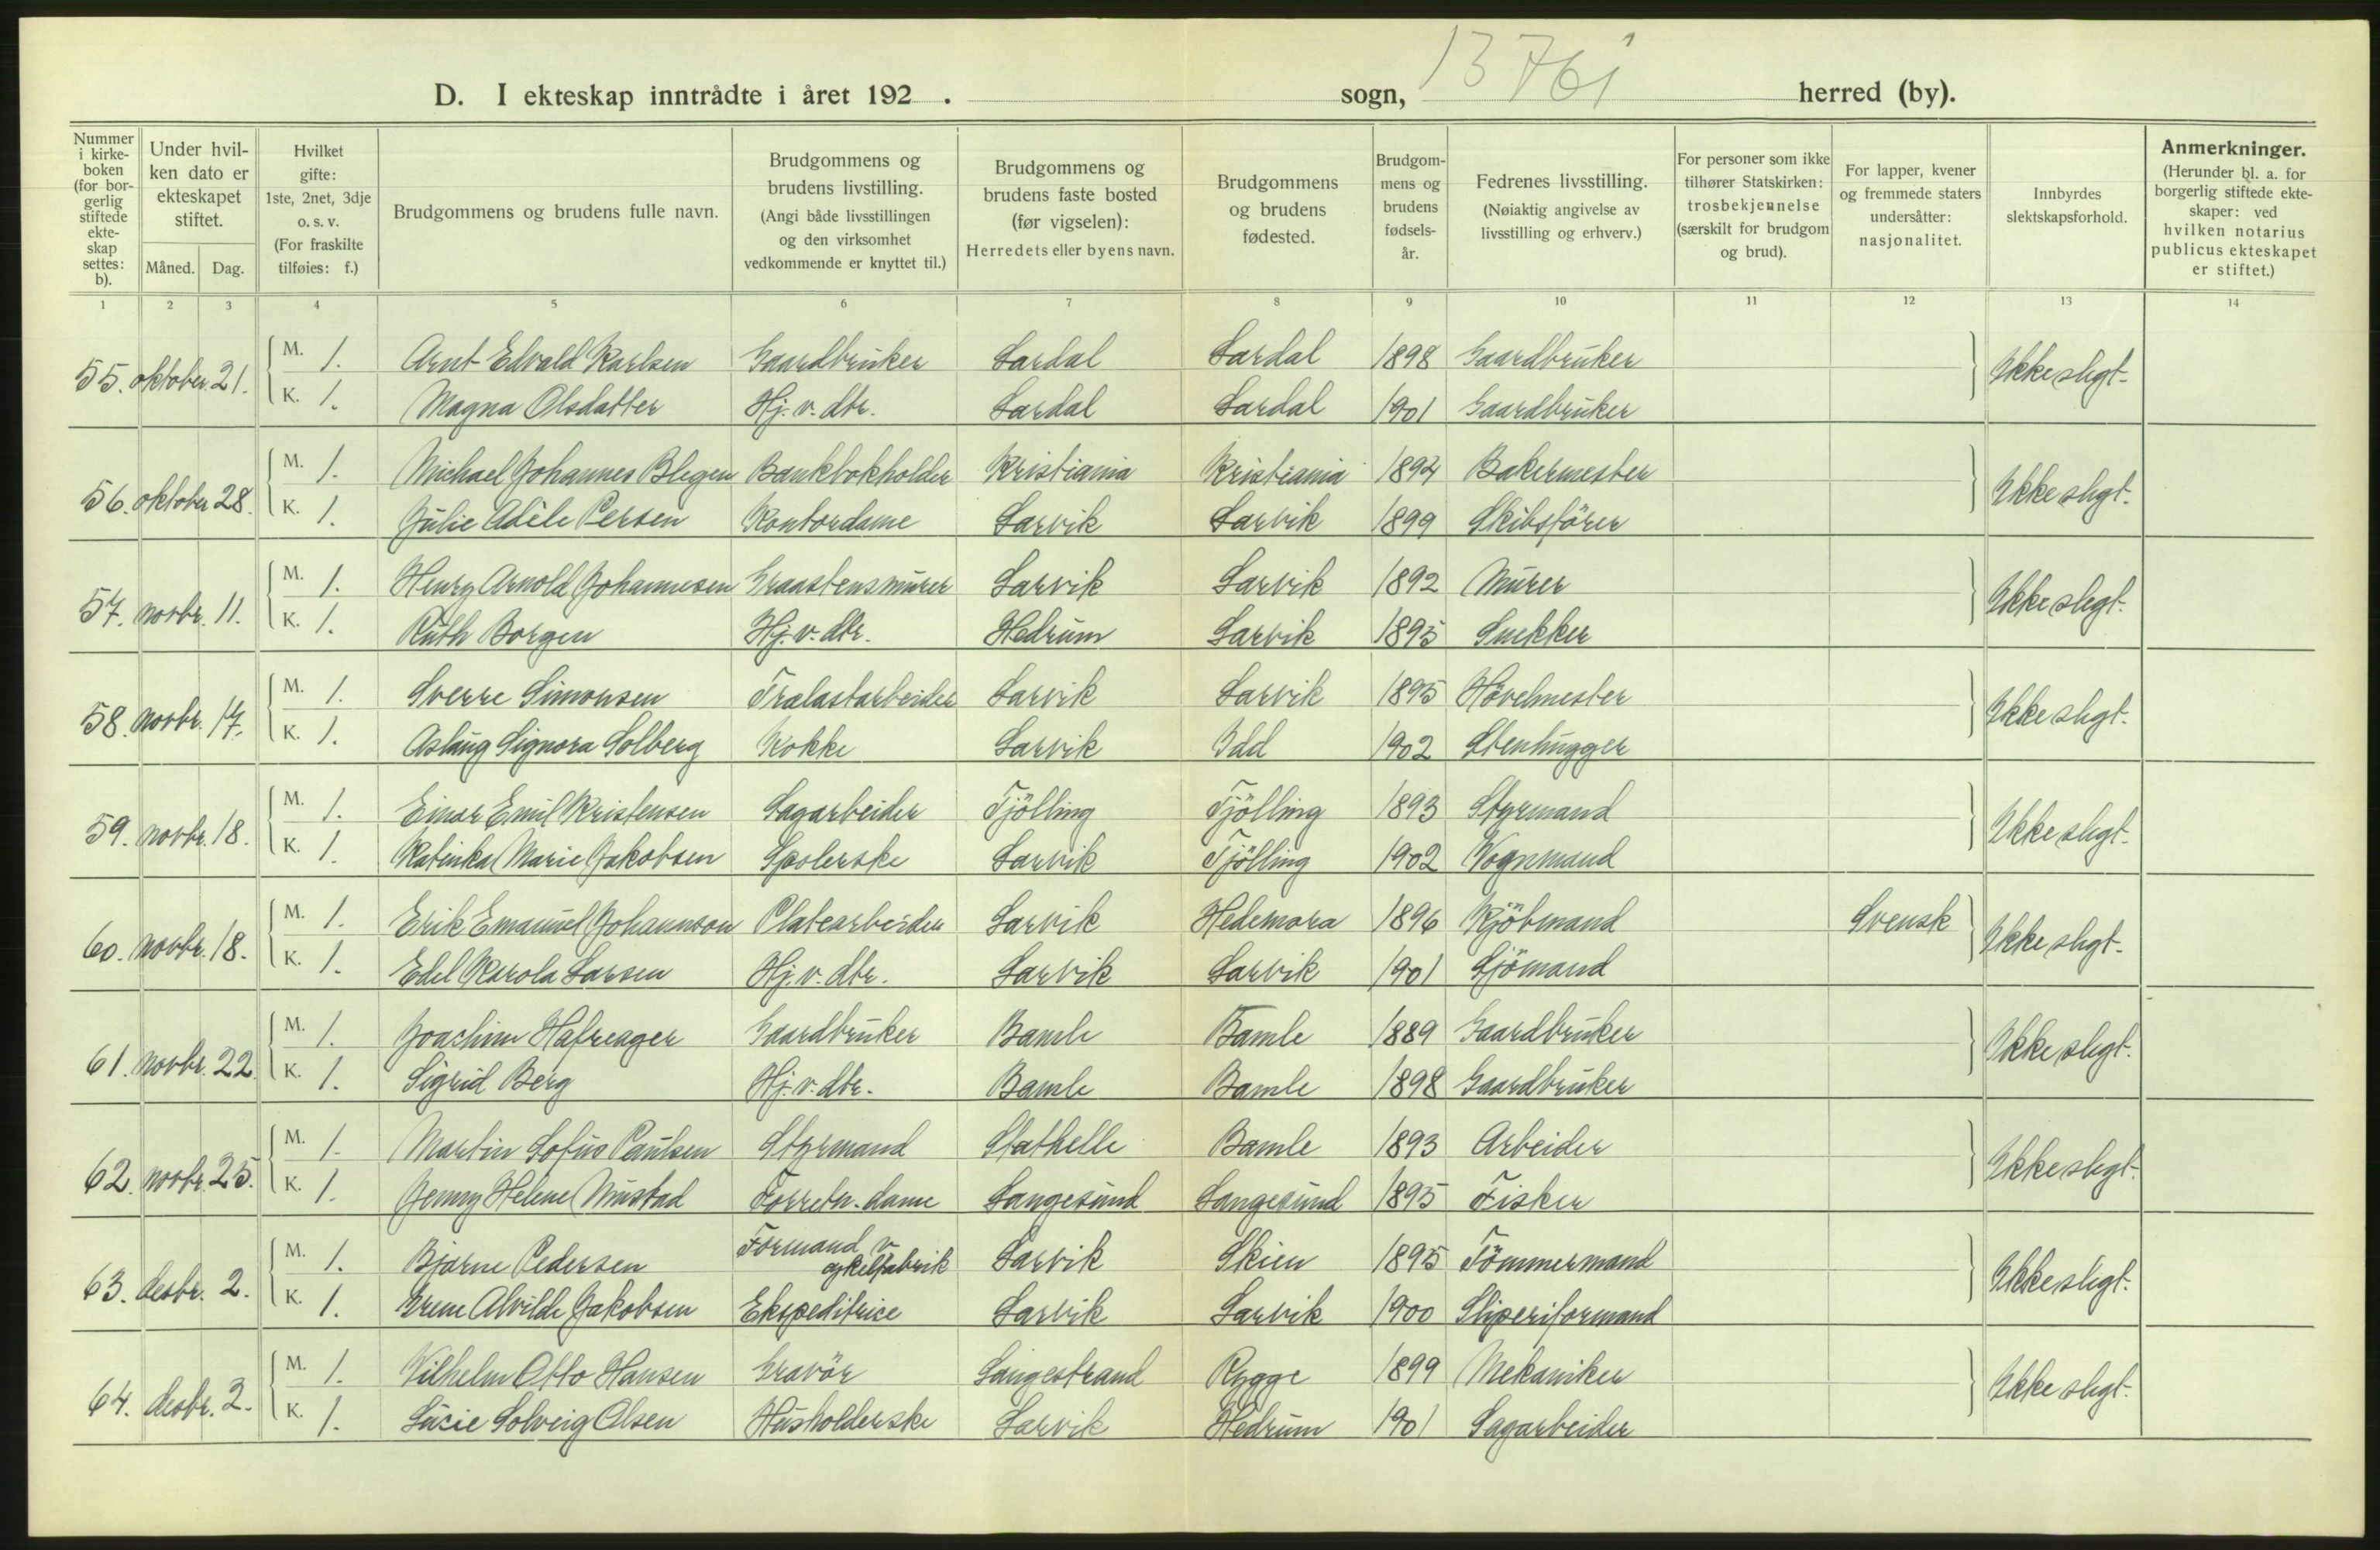 13 761
D. I ekteskap inntrådte i året 192 . sogn, herred (by).
Nummer i kirkeboken (for borgerlig stiftede ekteskap settes: b).
Under hvilken dato er ekteskapet stiftet.
Måned. Dag.
Hvilket gifte: 1ste, 2net, 3dje o. s. v. (For fraskilte tilføies: f.)
Brudgommens og brudens fulle navn.
Brudgommens og brudens livstilling. (Angi både livsstillingen og den virksomhet vedkommende er knyttet til.)
Brudgommens og brudens faste bosted (før vigselen): Herredets eller byens navn.
Brudgommens og brudens fødested.
Brudgommens og brudens fødselsår.
Fedrenes livsstilling. (Nøiaktig angivelse av livsstilling og erhverv.)
For personer som ikke tilhører Statskirken: trosbekjennelse (særskilt for brudgom og brud).
For lapper, kvener og fremmede staters undersåtter: nasjonalitet.
Innbyrdes slektskapsforhold.
Anmerkninger. (Herunder bl. a. for borgerlig stiftede ekteskaper: ved hvilken notarius publicus ekteskapet er stiftet.)
1 2 3 4 5 6 7 8 9 10 11 12 13 14
55. oktober 21. M. 1. Arnt Edvald Karlsen Gaardbruker Lardal Lardal 1898 Gaardbruker Ikke slegt.
K. 1. Magna Olsdatter Hj. v. dtr. Lardal Lardal 1901 Gaardbruker
56. oktober 28. M. 1. Michael Johannes Blegen Bankbokholder Kristiania Kristiania 1894 Bakermester Ikke slegt.
K. 1. Julie Adèle Persen Kontordame Larvik Larvik 1899 Skibsförer
57. novbr. 11. M. 1. Henry Arnold Johannesen Graastensmurer Larvik Larvik 1892 Murer Ikke slegt.
K. 1. Ruth Borgen Hj. v. dtr. Hedrum Larvik 1895 Snekker
58. novbr. 17. M. 1. Sverre Simonsen Tralastarbeider Larvik Larvik 1895 Hövelmester Ikke slegt.
K. 1. Aslaug Signora Solberg Kokke Larvik Idd 1902 Stenhugger
59. novbr. 18. M. 1. Einar Emil Kristensen Sagarbeider Tjölling Tjölling 1893 Styrmand Ikke slegt.
K. 1. Katinka Marie Jakobsen Spolerske Larvik Tjölling 1902 Vognmand
60. novbr. 18. M. 1. Erik Emanuel Johannson Platearbeider Larvik Hedemora 1896 Kjöbmand Svensk Ikke slegt.
K. 1. Edel Karola Larsen Hj. v. dtr. Larvik Larvik 1901 Sjömand
61. novbr. 22. M. 1. Joachim Hafreager Gaardbruker Bamle Bamle 1889 Gaardbruker Ikke slegt.
K. 1. Sigrid Berg Hj. v. dtr. Bamle Bamle 1898 Gaardbruker
62. novbr. 25. M. 1. Martin Sofus Paulsen Styrmand Stathelle Bamle 1893 Arbeider Ikke slegt.
K. 1. Jenny Helene Mustad Forretn. dame Langesund Langesund 1895 Fisker
63. desbr. 2. M. 1. Bjarne Pedersen Formand v. cykelfabrik Larvik Skien 1895 Tömmermand Ikke slegt.
K. 1. Irene Alvilde Jakobsen Ekspeditrice Larvik Larvik 1900 Sliperiformand
64. desbr. 2. M. 1. Vilhelm Otto Hansen Gravör Langestrand Rygge 1899 Mekaniker Ikke slegt.
K. 1. Lucie Solveig Olsen Husholderske Larvik Hedrum 1901 Sagarbeider